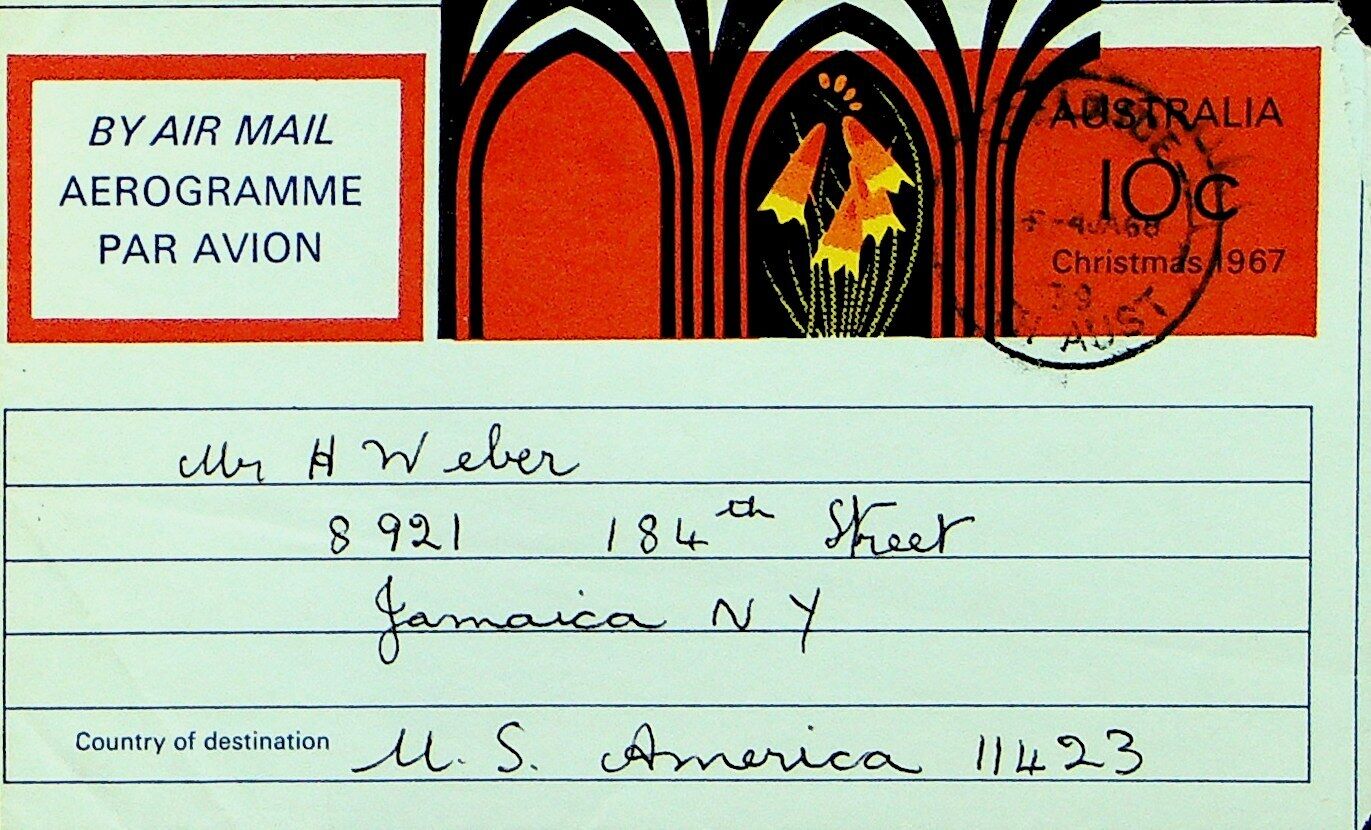 BY AIR MAIL
AEROGRAMME
PAR AVION
AUSTRALIA
10c
Christmas 1967
W. AUST
Mr H Weber
8921 184th Street
Jamaica NY
Country of destination U. S. America 11423